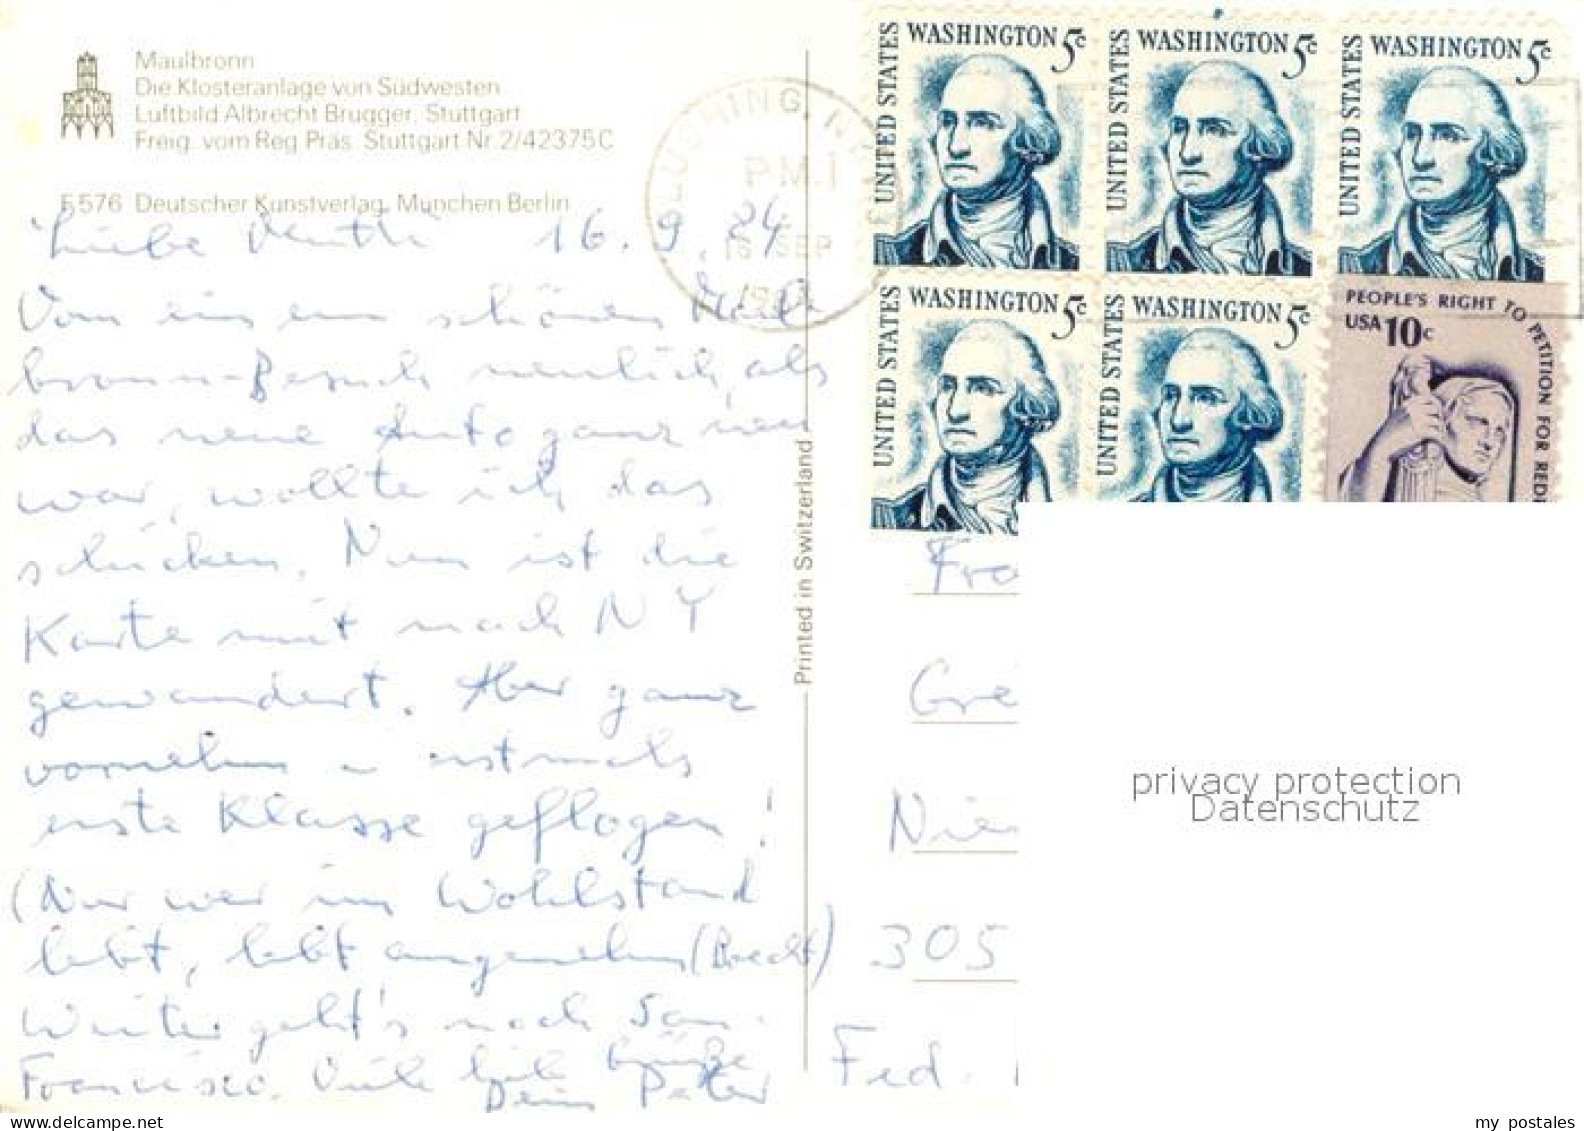 Maulbronn
Die Klosteranlage von Südwesten
Luftbild Albrecht Brugger, Stuttgart
Freig. vom Reg Präs. Stuttgart Nr. 2/42375C
F 576 Deutscher Kunstverlag, München Berlin
Liebe 16.9.84
Von einem schönen Maul
bronn-Besuch neulich, als
das neue Auto ganz neu
war, wollte ich das
schicken. Nun ist die
Karte mit nach NY
gewandert. Aber ganz
vornehm u erstmals
erste Klasse geflogen!
(Nur wer im Wohlstand
lebt, lebt angenehm (Brecht)
Weiter geht's nach San
Francisco. Viele liebe Grüße
Dein Peter
Printed in Switzerland
FLUSHING, NY
PM
16 SEP
UNITED STATES WASHINGTON 5c
UNITED STATES WASHINGTON 5c
UNITED STATES WASHINGTON 5c
UNITED STATES WASHINGTON 5c
UNITED STATES WASHINGTON 5c
PEOPLE'S RIGHT TO PETITION FOR RED
USA 10c
Fra
Gre
Nie
305
Fed.
privacy protection
Datenschutz
my postales